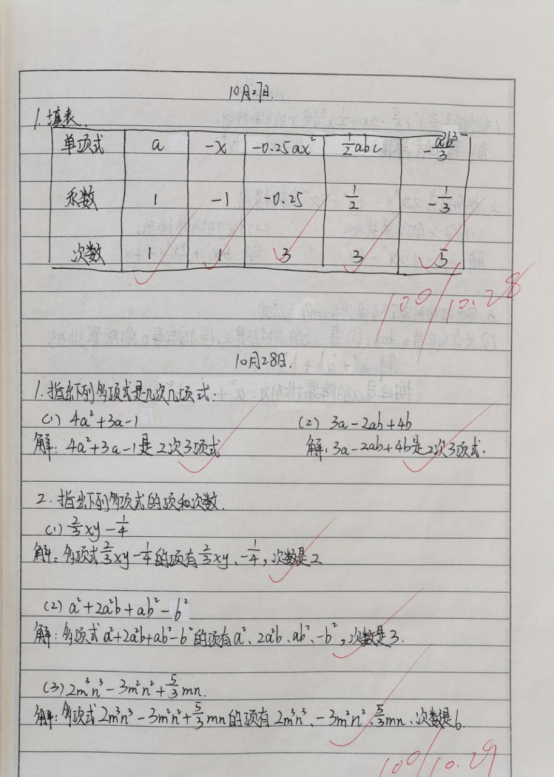 10月27日.
1.填表.
单项式 a -x -0.25ax² 1/2abc
系数 1 -1 -0.25 1/2 -1/3
次数 1 1 3 3 5
100/10.28
10月28日.
1.指出下列多项式是几次几项式.
(1) 4a²+3a-1 (2) 3a-2ab+4b
解:4a²+3a-1是2次3项式 解:3a-2ab+4b是2次3项式.
2.指出下列多项式的项和次数.
(1) 2/3xy-1/4
解:多项式2/3xy-1/4的项有2/3xy、-1/4,次数是2
(2) a²+2a²b+ab²-b²
解:多项式a²+2a²b+ab²-b²的项有a²、2a²b、ab²、-b²,次数是3.
(3) 2m³n³-3m²n²+5/3mn.
解:多项式2m³n³-3m²n²+5/3mn的项有2m³n³、-3m²n²、5/3mn.次数是6.
100/10.29